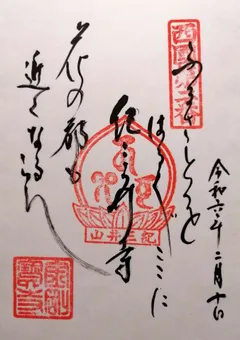 西國第二番
ふるさとを
はるばるここに
紀三井寺
花の都も
近くなるらん
令和六年二月十日
紀三井山